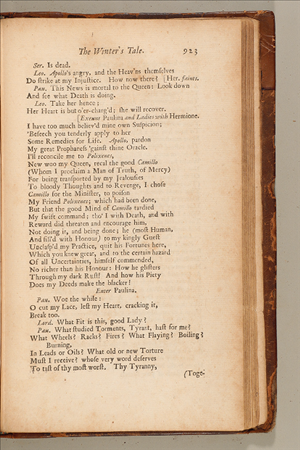 The Winter's Tale. 923
Ser. Is dead.
Leo. Apollo's angry, and the Heav'ns themselves
Do strike at my Injustice. How now there? [Her. faints.
Pau. This News is mortal to the Queen: Look down
And see what Death is doing.
Leo. Take her hence;
Her Heart is but o'er-charg'd; she will recover.
[Exeunt Paulina and Ladies with Hermione.
I have too much believ'd mine own Suspicion;
'Beseech you tenderly apply to her
Some Remedies for Life. Apollo, pardon
My great Prophaness 'gainst thine Oracle.
I'll reconcile me to Polixenes,
New woo my Queen, recal the good Camillo
(Whom I proclaim a Man of Truth, of Mercy)
For being transported by my Jealousies
To bloody Thoughts and to Revenge, I chose
Camillo for the Minister, to poison
My Friend Polixenes; which had been done,
But that the good Mind of Camillo tardied
My swift command; tho' I with Death, and with
Reward did threaten and encourage him,
Not doing it, and being done; he (most Human,
And fill'd with Honour) to my kingly Guest
Unclasp'd my Practice, quit his Fortunes here,
Which you knew great, and to the certain hazard
Of all Uncertainties, himself commended,
No richer than his Honour: How he glisters
Through my dark Rust? And how his Piety
Does my Deeds make the blacker?
Enter Paulina.
Pau. Woe the while:
O cut my Lace, lest my Heart, cracking it,
Break too.
Lord. What Fit is this, good Lady?
Pau. What studied Torments, Tyrant, hast for me?
What Wheels? Racks? Fires? What Flaying? Boiling?
Burning,
In Leads or Oils? What old or new Torture
Must I receive? whose very word deserves
To tast of thy most worst. Thy Tyranny,
(Toge-